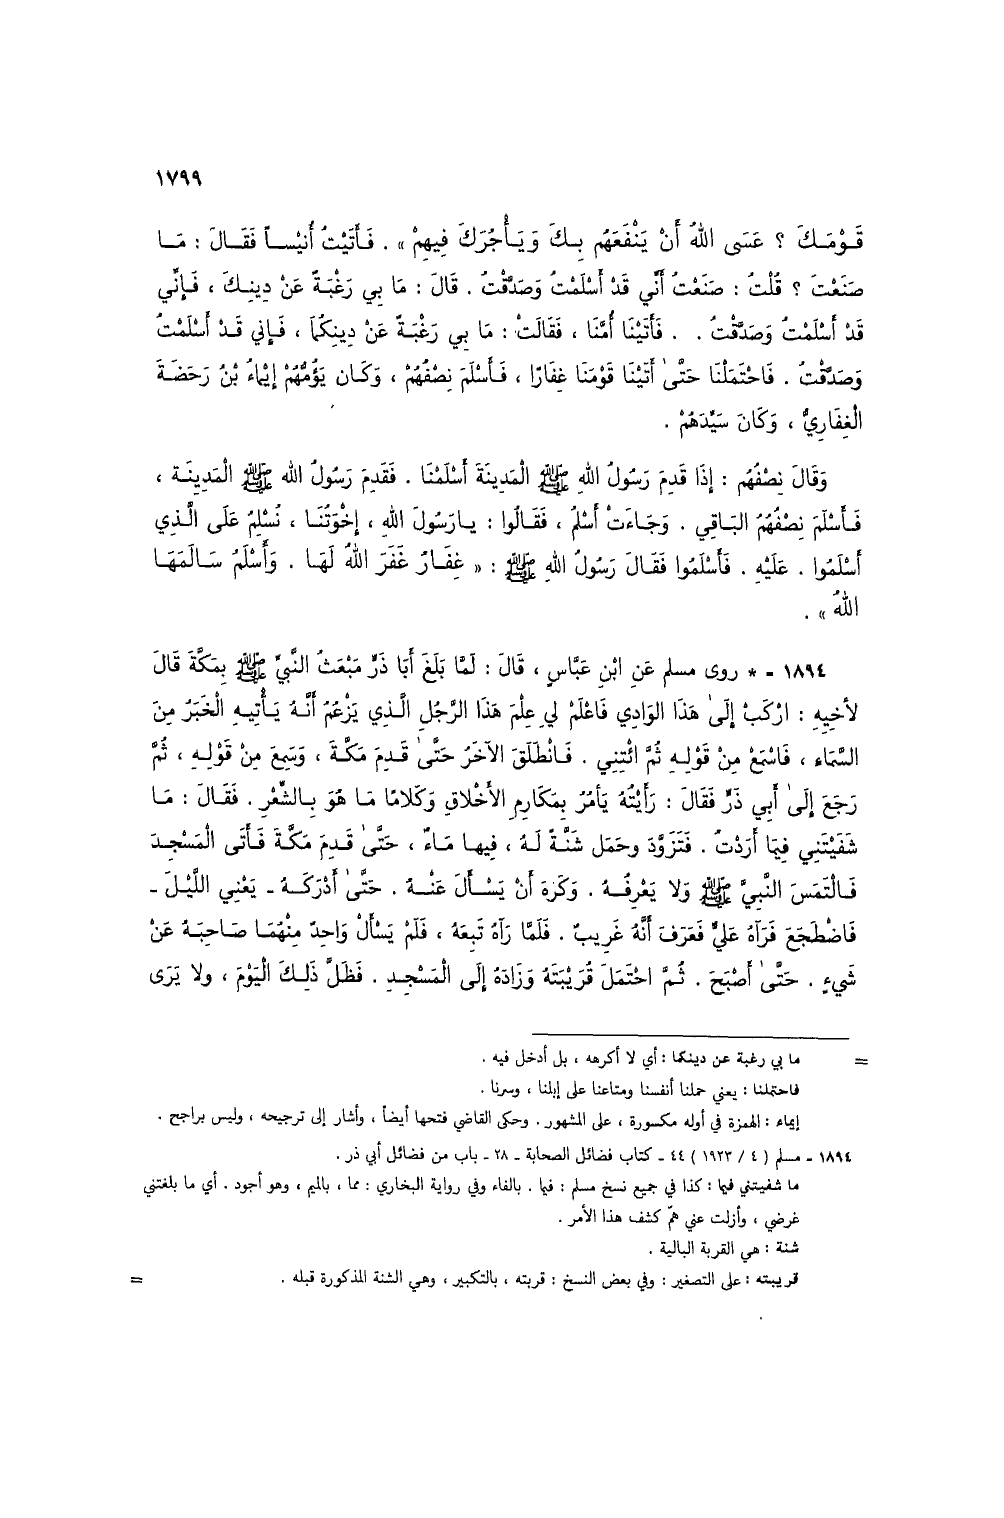 ١٧٩٩
قَوْمَكَ ؟ عَسَى اللهُ أَنْ يَنْفَعَهُم بِكَ وَيَأْجُرَكَ فِيهِمْ » . فَأَتَيْتُ أُنَيْساً فَقَالَ : مَا
صَنَعْتَ ؟ قُلْتُ : صَنَعْتُ أَنِّي قَدْ أَسْلَمْتُ وَصَدَّقْتُ . قَالَ : مَا بِي رَغْبَةٌ عَنْ دِينِكَ ، فَإِنِّي
قَدْ أَسْلَمْتُ وَصَدَّقْتُ . . فَأَتَيْنَا أُمَّنَا ، فَقَالَتْ : مَا بِي رَغْبَةٌ عَنْ دِينِكُمَا ، فَإِنِي قَدْ أَسْلَمْتُ
وَصَدَقْتُ . فَاحْتَمَلْنَا حَتَّىٰ أَتَيْنَا قَوْمَنَا غِفَارًا ، فَأَسْلَمَ نِصْفُهُمْ ، وَكَان يَؤُمُّهُمْ إِيْمَاءُ بْنُ رَحَضَةَ
الْغِفَارِيُّ ، وَكَانَ سَيِّدَهُمْ .
وَقَالَ نِصْفُهُم : إِذَا قَدِمَ رَسُولُ اللهِ ﷺ الْمَدِينَةَ أَسْلَمْنَا . فَقَدِمَ رَسُولُ الله ﷺ الْمَدِينَة ،
فَأَسْلَمَ نِصْفُهُمُ البَاقِي . وَجَاءَتْ أَسْلَمُ ، فَقَالُوا : يارَسُولَ اللهِ ، إِخْوَتُنَا ، نُسْلِمُ عَلَى الَّذِي
أَسْلَمُوا . عَلَيْهِ . فَأَسْلَمُوا فَقَالَ رَسُولُ اللهِ ﷺ : « غِفَارٌ غَفَرَ اللهُ لَهَا . وَأَسْلَمُ سَالَمَهَا
اللهُ » .
١٨٩٤ - * روى مسلم عَنِ ابْنِ عَبَّاسٍ ، قَالَ : لَمَّا بَلَغَ أَبَا ذَرٍّ مَبْعَثُ النَّبِيِّ ﷺ بِمَكَّةَ قَالَ
لأَخِيهِ : ارْكَبْ إِلَىٰ هَذَا الوَادِي فَاعْلَمْ لِي عِلْمَ هَذَا الرَّجُلِ الَّذِي يَزْعُمُ أَنَّهُ يَأْتِيهِ الْخَبَرُ مِنَ
السَّمَاء ، فَاسْمَعْ مِنْ قَوْلِهِ ثُمَّ ائْتِنِي . فَانْطَلَقَ الآخَرُ حَتَّىٰ قَدِمَ مَكَّةَ ، وَسَمِعَ مِنْ قَوْلِهِ ، ثُمَّ
رَجَعَ إِلَىٰ أَبِي ذَرٍّ فَقَالَ : رَأَيْتُهُ يَأْمُرُ بِمَكَارِمِ الأَخْلاقِ وَكَلامًا مَا هُوَ بِالشَّعْرِ . فَقَالَ : مَا
شَفَيْتَنِي فِيمَا أَرَدْتُ . فَتَزَوَّدَ وحَمَل شَنَّةً لَهُ ، فِيها مَاءٌ ، حَتَّىٰ قَدِمَ مَكَّةَ فَأَتَى الْمَسْجِدَ
فَالْتَمَسَ النَّبِيَّ ﷺ وَلا يَعْرِفُهُ . وَكَرِهَ أَنْ يَسْأَلَ عَنْهُ . حَتَّىٰ أَدْرَكَهُ - يَعْنِي اللَّيْلَ -
فَاضْطَجَعَ فَرَآهُ عَلِيٌّ فَعَرَفَ أَنَّهُ غَرِيبٌ . فَلَمَّا رَآهُ تَبِعَهُ ، فَلَمْ يَسْأَلْ وَاحِدٌ مِنْهُمَا صَاحِبَهُ عَنْ
شَيْءٍ . حَتَّىٰ أَصْبَحَ . ثُمَّ احْتَمَلَ قُرَيْبَتَهُ وَزَادَهُ إِلَى الْمَسْجِدِ . فَظَلَّ ذَلِكَ الْيَوْمَ ، ولا يَرَى
= ما بي رغبة عن دينكما : أي لا أكرهه ، بل أدخل فيه .
فاحتملنا : يعني حملنا أنفسنا ومتاعنا على إبلنا ، وسرنا .
إيماء : الهمزة في أوله مكسورة ، على المشهور . وحكى القاضي فتحها أيضاً ، وأشار إلى ترجيحه ، وليس براجح .
١٨٩٤ - مسلم ( ٤ / ١٩٢٣ ) ٤٤ - كتاب فضائل الصحابة - ٢٨ - باب من فضائل أبي ذر .
ما شفيتني فيما : كذا في جميع نسخ مسلم : فيما . بالفاء وفي رواية البخاري : مما ، بالميم ، وهو أجود . أي ما بلغتني
غرضي ، وأزلت عني همّ كشف هذا الأمر .
شنة : هي القربة البالية .
قريبته : على التصغير : وفي بعض النسخ : قربته ، بالتكبير ، وهي الشنة المذكورة قبله . =